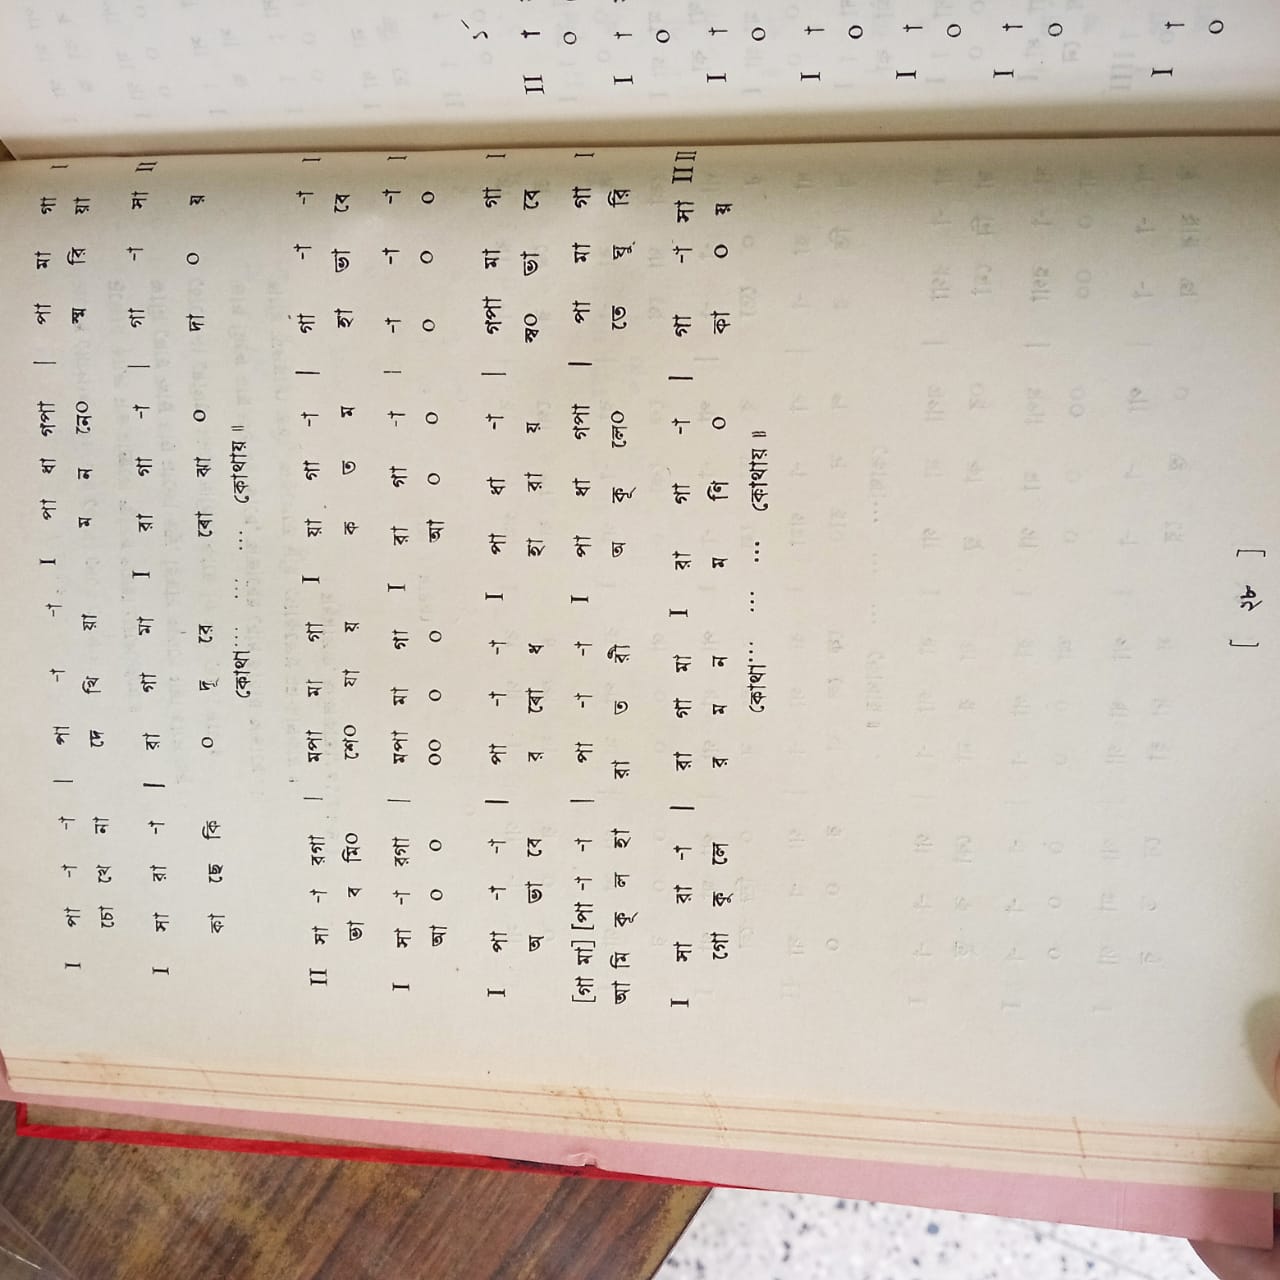 I পা -া -া -া | পা -া -া I পা ধা গপা | পা মা গা I
চো খে না দে খি য়া ম ন নে০ স্ম রি য়া
I সা রা -া | রা গা মা I রা গা -া | গা -া সা II
কা ছে কি ০ দূ রে বো ঝা ০ দা ০ য়
কোথা... ... ... কোথায় ॥
II সা -া রগা | মপা মা গা I রা গা -া | গা -া -া I
ভা ব মি০ শে০ যা য় ক ত ম হা ভা বে
I সা -া রগা | মপা মা গা I রা গা -া | -া -া -া I
আ ০ ০ ০০ ০ ০ আ ০ ০ ০ ০ ০
I পা -া -া | পা -া -া I পা ধা -া | গপা মা গা I
অ ভা বে র বো ধ হা রা য় স্ব০ ভা বে
[গা মা] [পা -া -া | পা -া -া I পা ধা গপা | পা মা গা I
আ মি কূ ল হা রা ত রী অ কূ লে০ তে ঘু রি
I সা রা -া | রা গা মা I রা গা -া | গা -া সা II II
গো কু লে র ম ন ম ণি ০ কা ০ য়
কোথা... ... ... কোথায় ॥
[ ২৮ ]
১´
II †
০
I †
০
I †
০
I †
০
I †
০
I †
০
I †
০